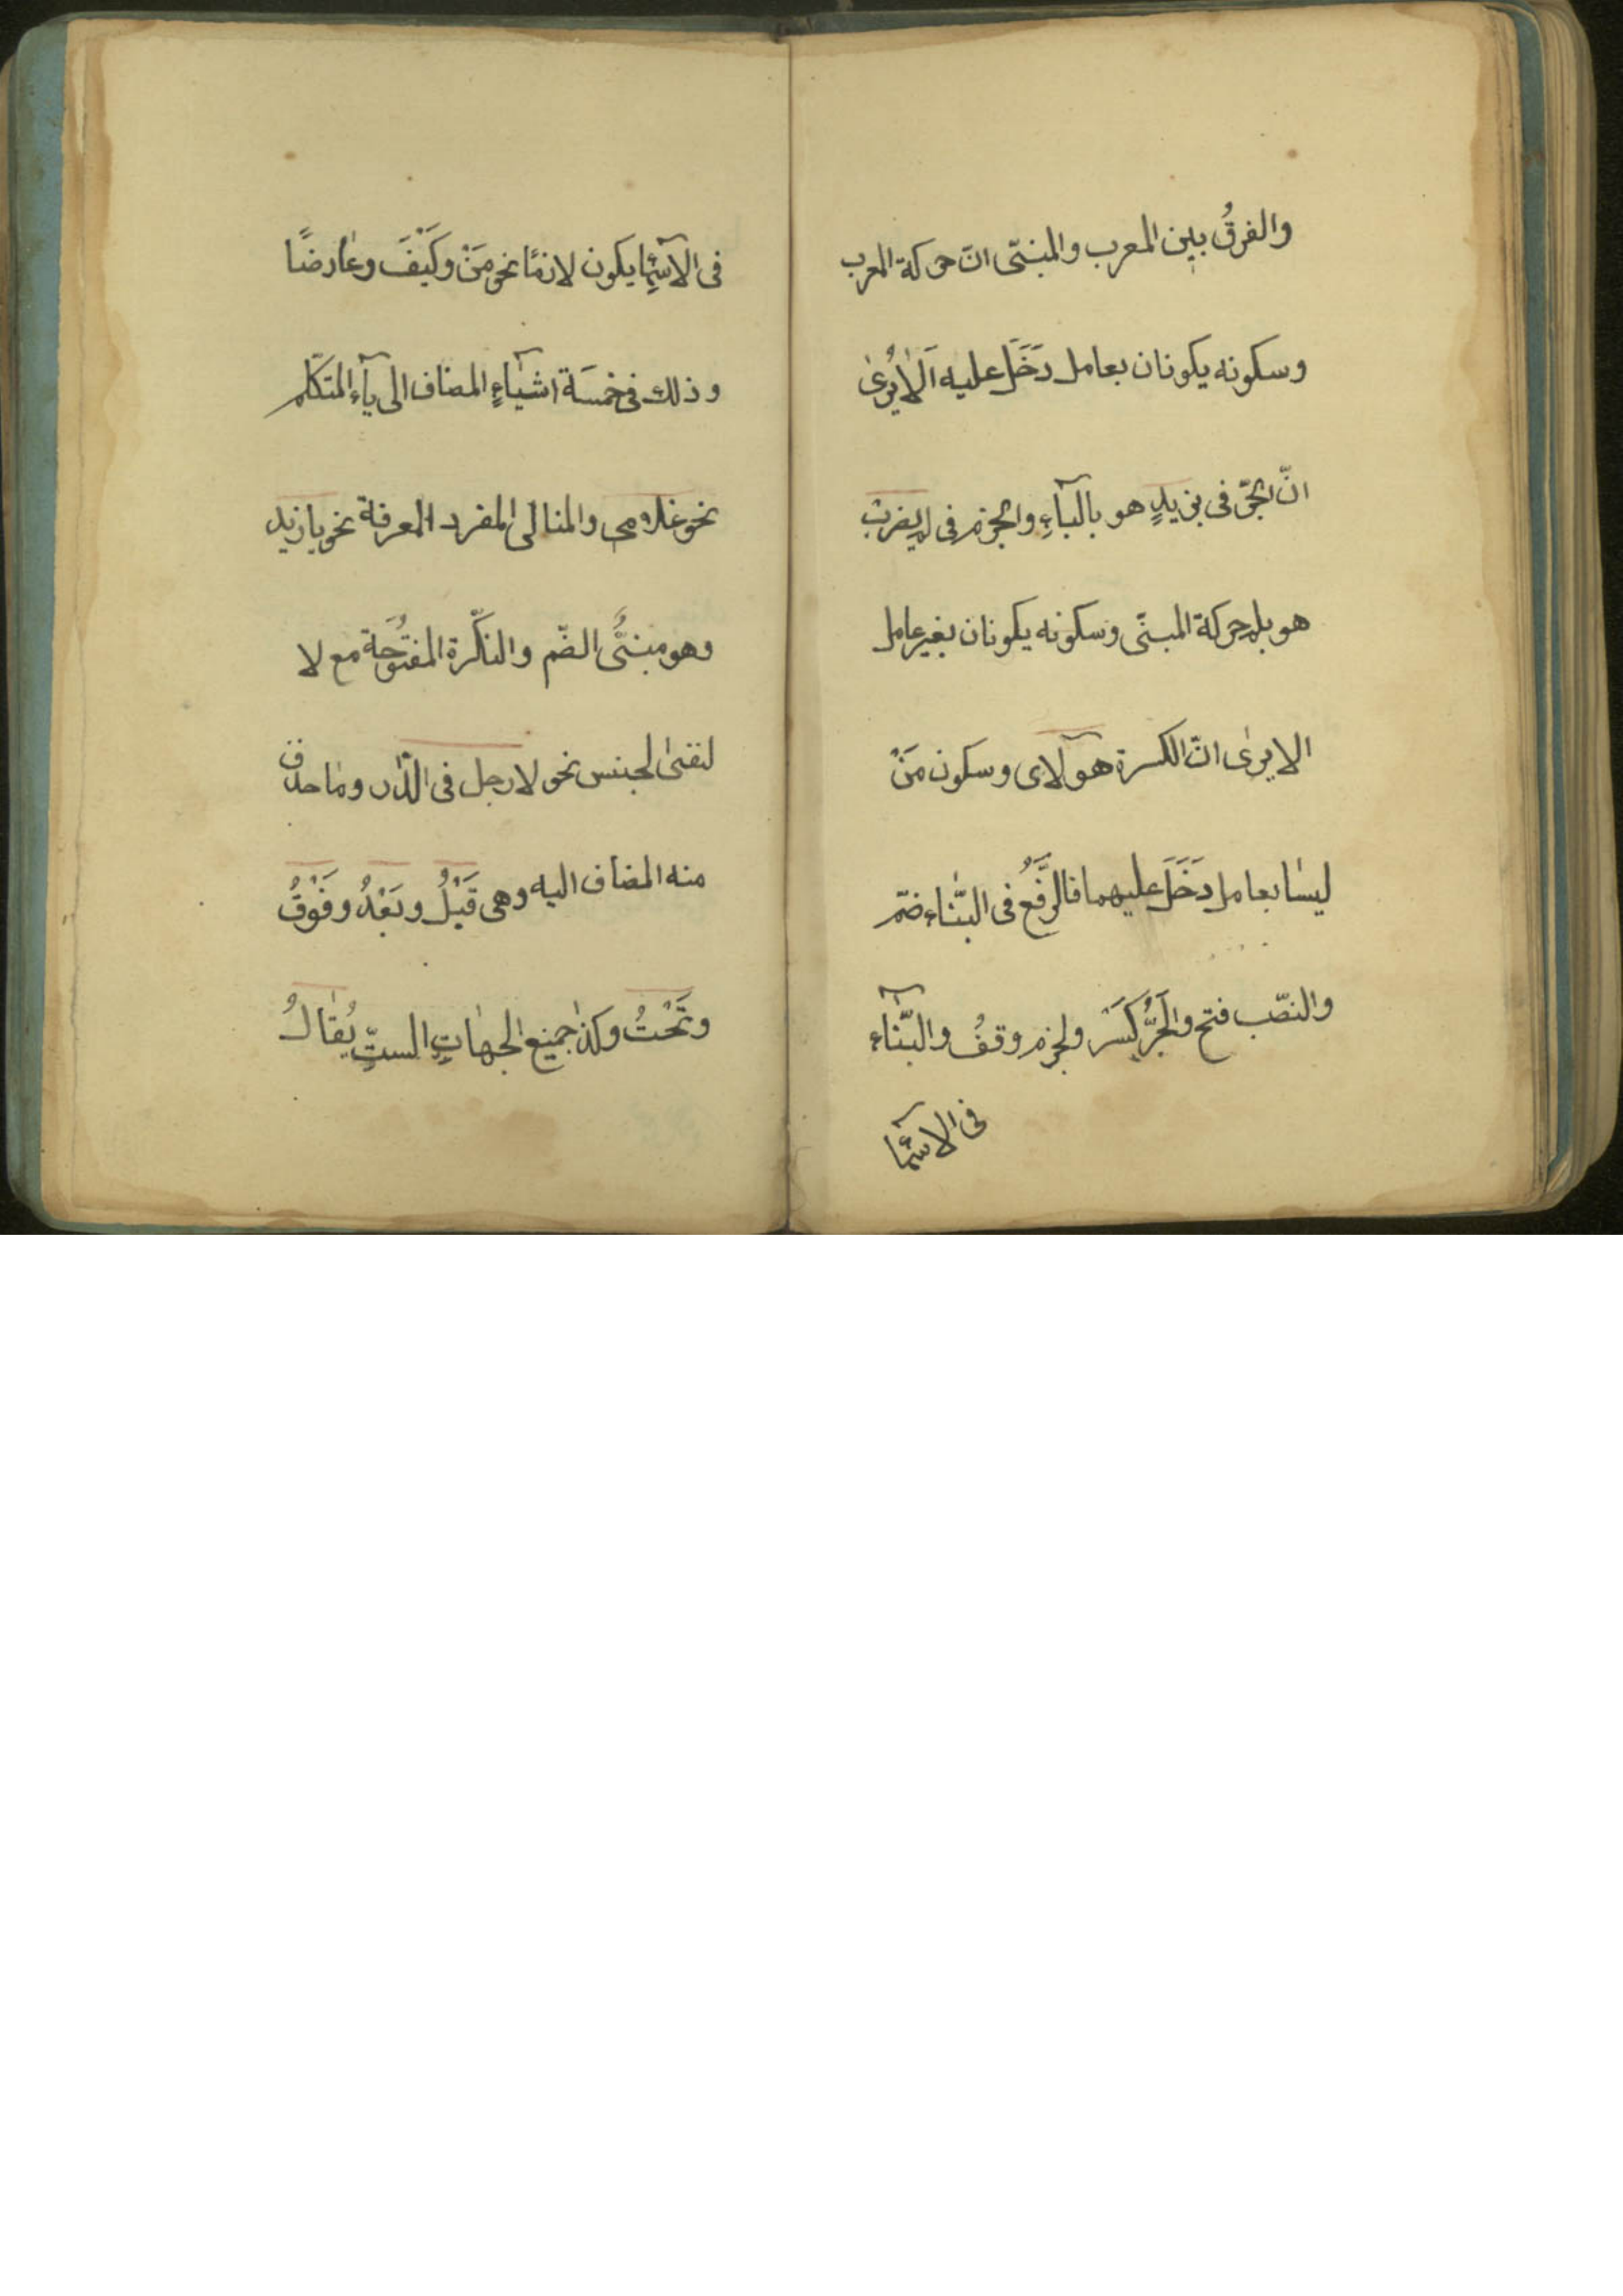 والفرقُ بين المعرب والمبنىّ انّ حركة المعرب
وسكونه يكونان بعامل دَخَلَ عليه اَلاٰ يُرىٰ
انّ الجرّ فى بزيدٍ هو بالبآءِ والجزم فى لم يضرب
هو بلم حركة المبنىّ وسكونه يكونان بغير عامل
الا يرىٰ انّ الكسرة هوٓلاى وسكون مَنْ
ليسٰا بعامل دَخَلَ عليهما فالرَّفَعُ فى البنٰاء ضمّ
والنصّب فتح والجَرُّ كَسَر ولجزم وقفُ والبنّٰآء
فى الاسمٓا
فى الاسمٓا يكون لازمًا نحو مَنْ وكَيْفَ وعٰارضًا
وذلك فى خمسَة اشيٓاءٍ المضاف الى يآءِ المتكلّم
نحو غلامى والمنالى المفرد المعرفة نحو يا زيد
وهو مبنىُّ الضّم والنكّرة المفتُوحَة مع لا
لنفىٰ لجنس نحو لا رجل فى الدّٰر ومٰا حذف
منه المضاف اليه وهى قَبْلُ وبَعْدُ وفَوْقُ
وتَحْتُ وكذٰ جميع الجهٰاتِ الستِّ يُقٰالُ